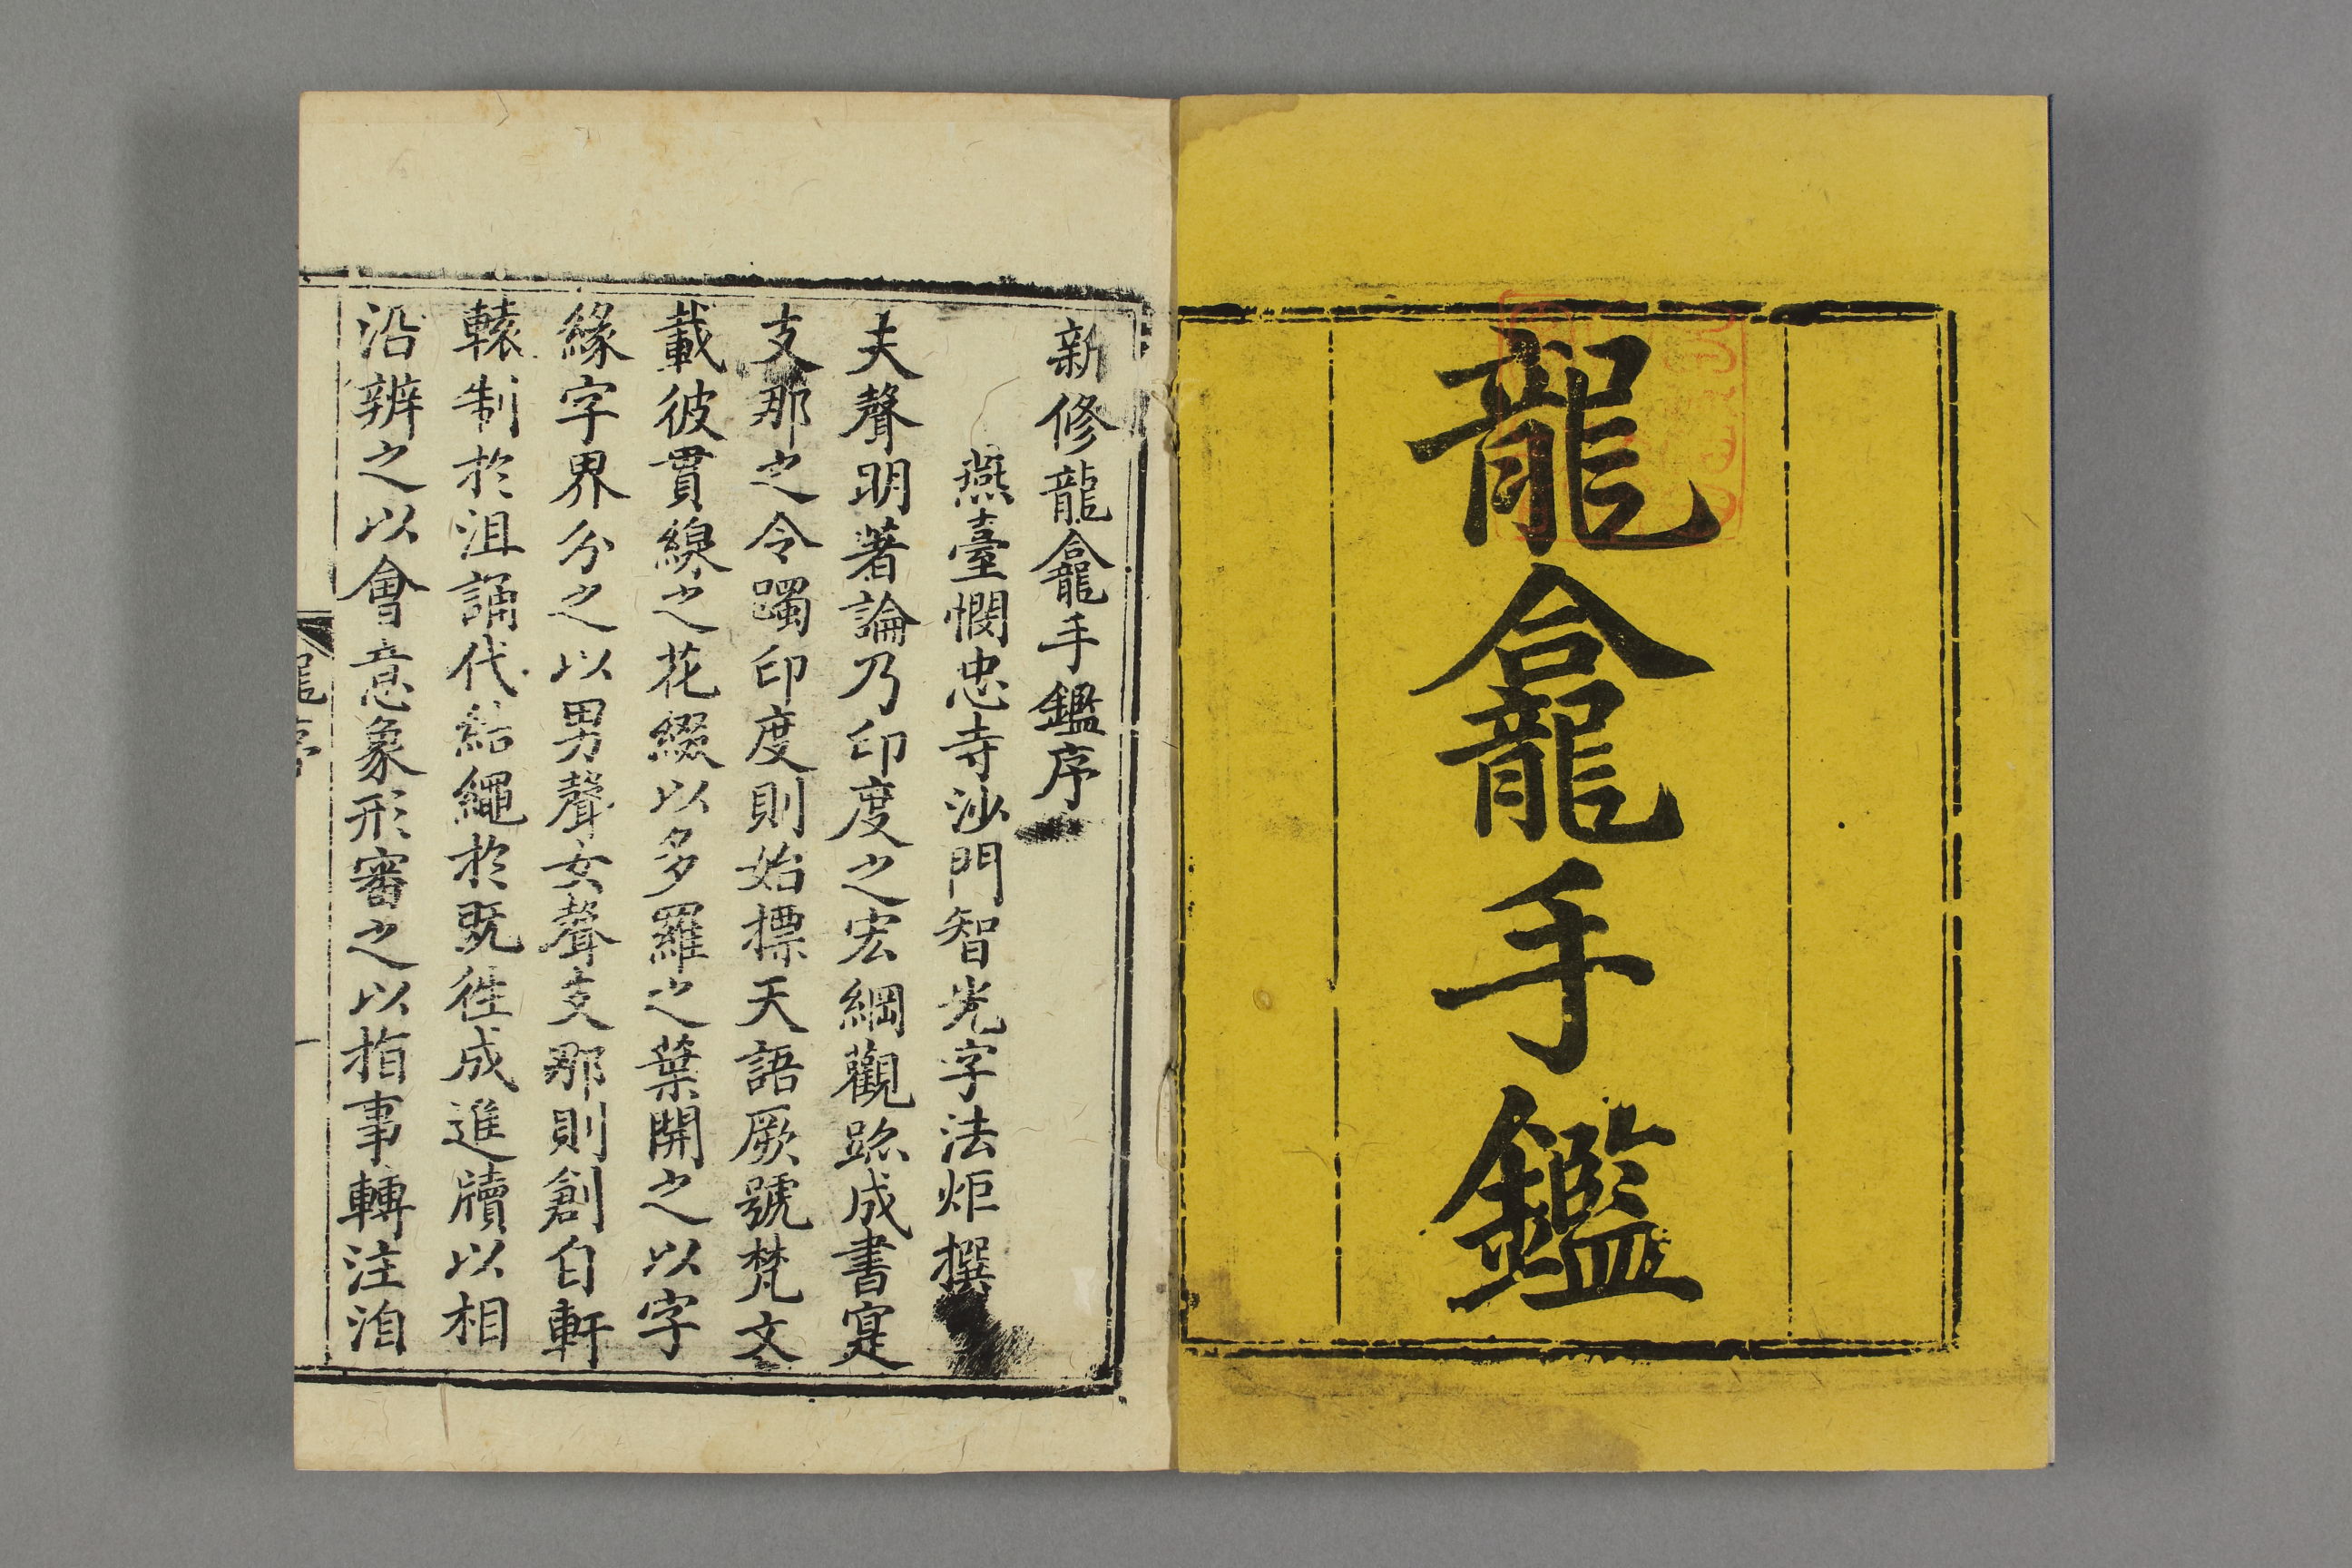 龍龕手鑑
新修龍龕手鑑序
燕臺憫忠寺沙門智光字法炬撰
夫聲明著論乃印度之宏綱觀跡成書寔
支那之令躅印度則始摽天語厥號梵文
載彼貫線之花綴以多羅之葉開之以字
緣字界分之以男聲女聲支那則創自軒
轅制於沮誦代結繩於既徃成進牘以相
沿辨之以會意象形審之以指事轉注洎
龍序
一